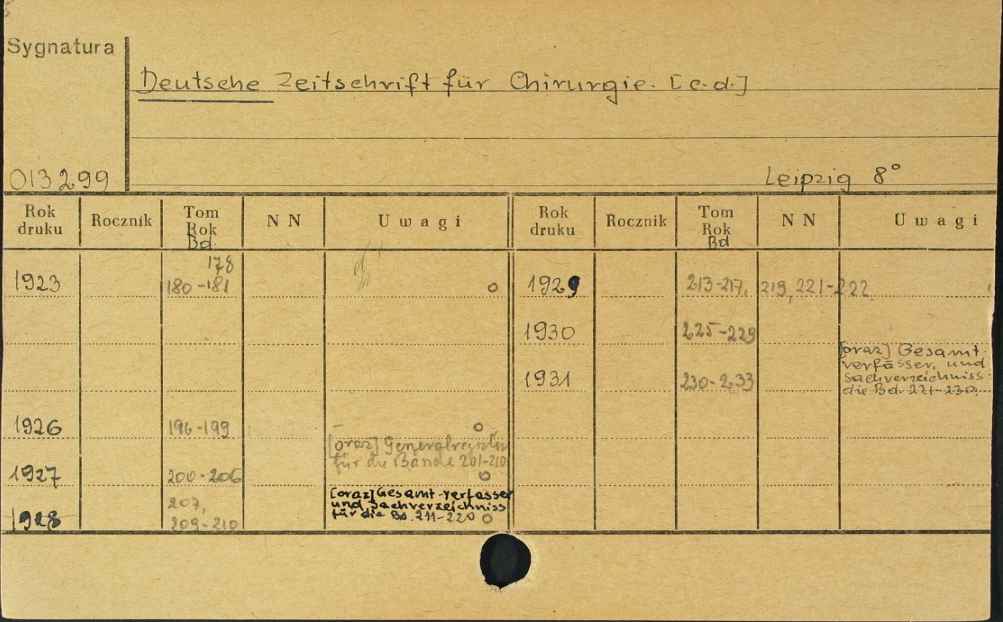 Sygnatura
Deutsche Zeitschrift für Chirurgie. [c.d.]
013299
Leipzig 8°
Rok druku Rocznik Tom Rok Bd. N N Uwagi Rok druku Rocznik Tom Rok Bd N N Uwagi
178
1923 180-181 o 1929 213-217, 219, 221-222
1930 225-229
[oraz] Gesamt-
verfasser. und
1931 230-233 Sachverzeichniss
die Bd. 221-230.
1926 196-199 o
[oraz] Generalregister
für die Bände 201-210
1927 200-206 o
[oraz] Gesamt-verfasser
207, und Sachverzeichniss
1928 209-210 für die Bd. 211-220 o